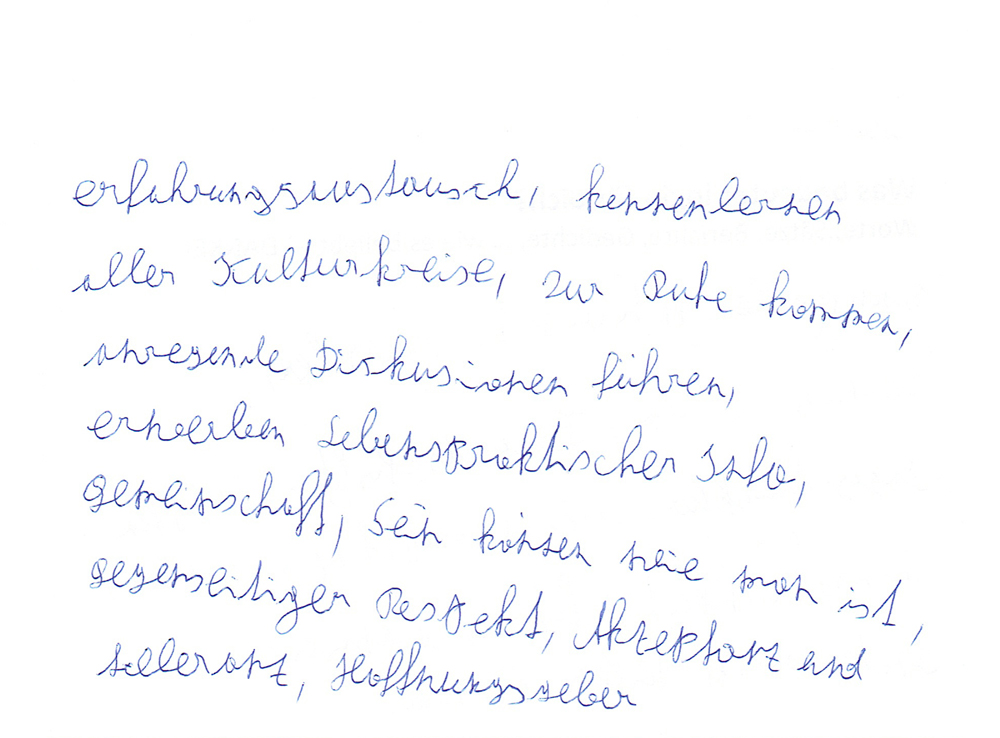 erfahrungsaustausch, kennenlernen
aller Kulturkreise, zur Ruhe kommen,
anregende Diskusionen führen,
erwerben Lebenspraktischer Info,
Gemeinschaft, Sein können wie man ist,
gegenseitiger Respekt, Akzeptanz und
tolleranz, Hoffnungsgeber